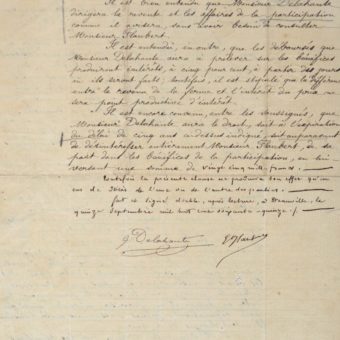 Il est bien entendu que Monsieur Delahante
dirigera la revente et les affaires de la participation
comme il avisera, sans avoir besoin de consulter
Monsieur Flaubert.
Il est entendu, en outre, que les déboursés que
Monsieur Delahante aura à prélever sur les bénéfices
produiront intérêts, à cinq pour cent, à partir des jours
où ils seront faits; toutefois, il est stipulé que la différence
entre le revenu de la ferme et l'intérêt du prix ne
sera point productive d'intérêt.
Il est encore convenu, entre les soussignés, que
Monsieur Delahante aura le droit, soit à l'expiration
du délai de cinq ans ci-dessus indiqué, soit auparavant
de désintéresser entièrement Monsieur Flaubert, de sa
part dans les bénéfices de la participation, en lui
versant une somme de vingt cinq mille francs.
Toutefois la présente clause ne produira son effet qu'en
cas de décès de l'une ou de l'autre des parties.
fait et signé double, après lecture, à Deauville, le
quinze septembre mil huit cent soixante-quinze.
G Delahante